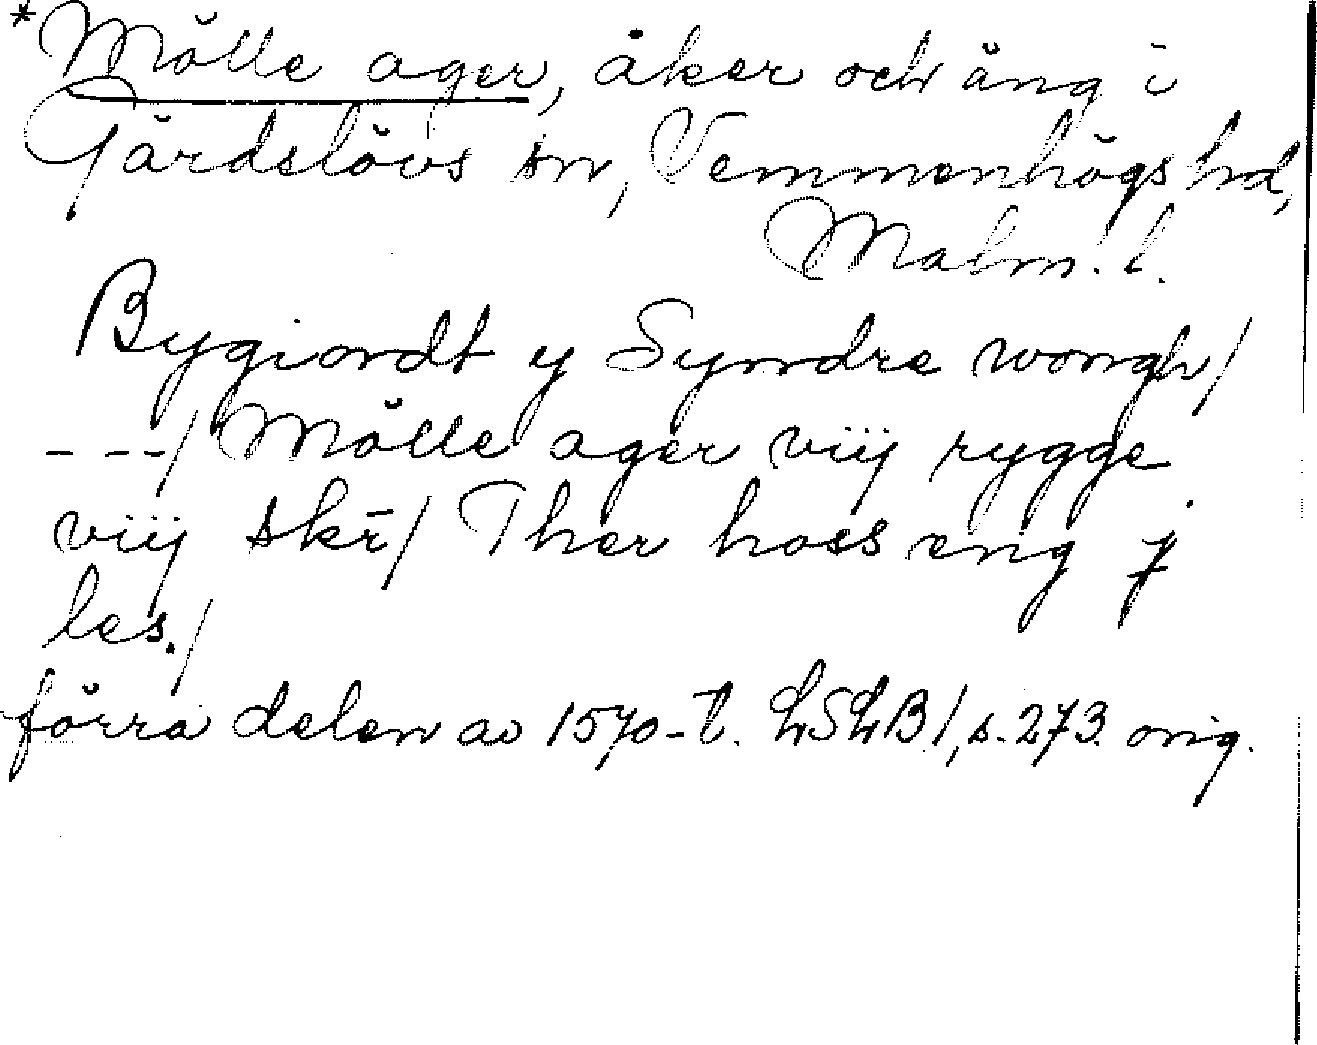 *Mölle ager, åker och äng i
Gärdslövs sn, Vemmenhögs hd,
Malm. l.
Bygiordt y Syndre wongh/
---/ Mölle ager viij rygge
viij skr̄/ Ther hoss eng j
les./
förra delen av 1570-t. LSLB1, s. 273. orig.